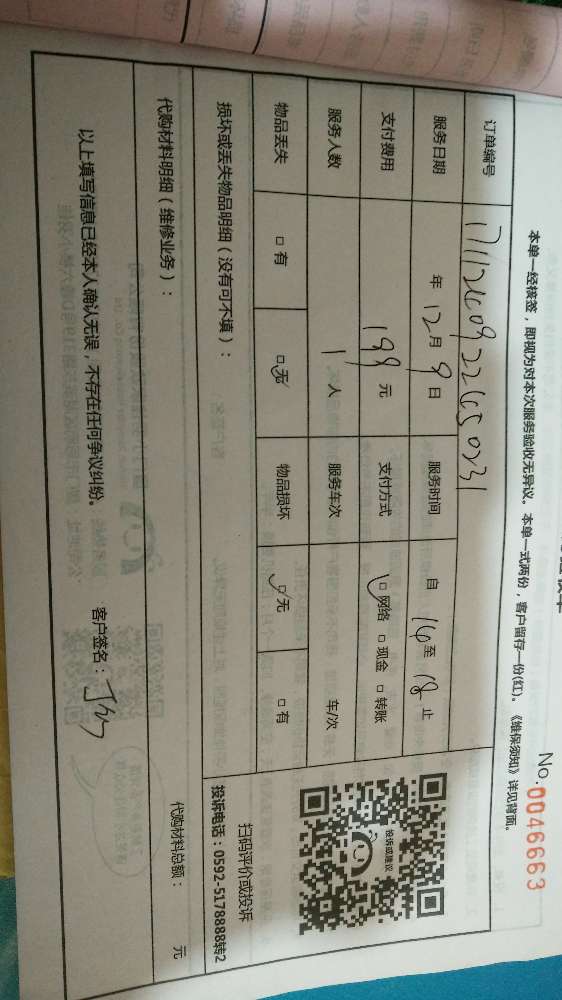 No.0046663
本单一经核签，即视为对本次服务验收无异议。本单一式两份，客户留存一份(红)。《维保须知》详见背面。
订单编号
服务日期 年 12月 9日 服务时间 自 16 至 18 止
支付费用 199 元 支付方式 □网络 □现金 □转账
服务人数 1 人 服务车次 车/次
物品丢失 □有 □无 物品损坏 □无 □有
投诉或建议
扫码评价或投诉
投诉电话：0592-5178888转2
损坏或丢失物品明细（没有可不填）：
代购材料明细（维修业务）： 代购材料总额： 元
以上填写信息已经本人确认无误，不存在任何争议纠纷。 客户签名：